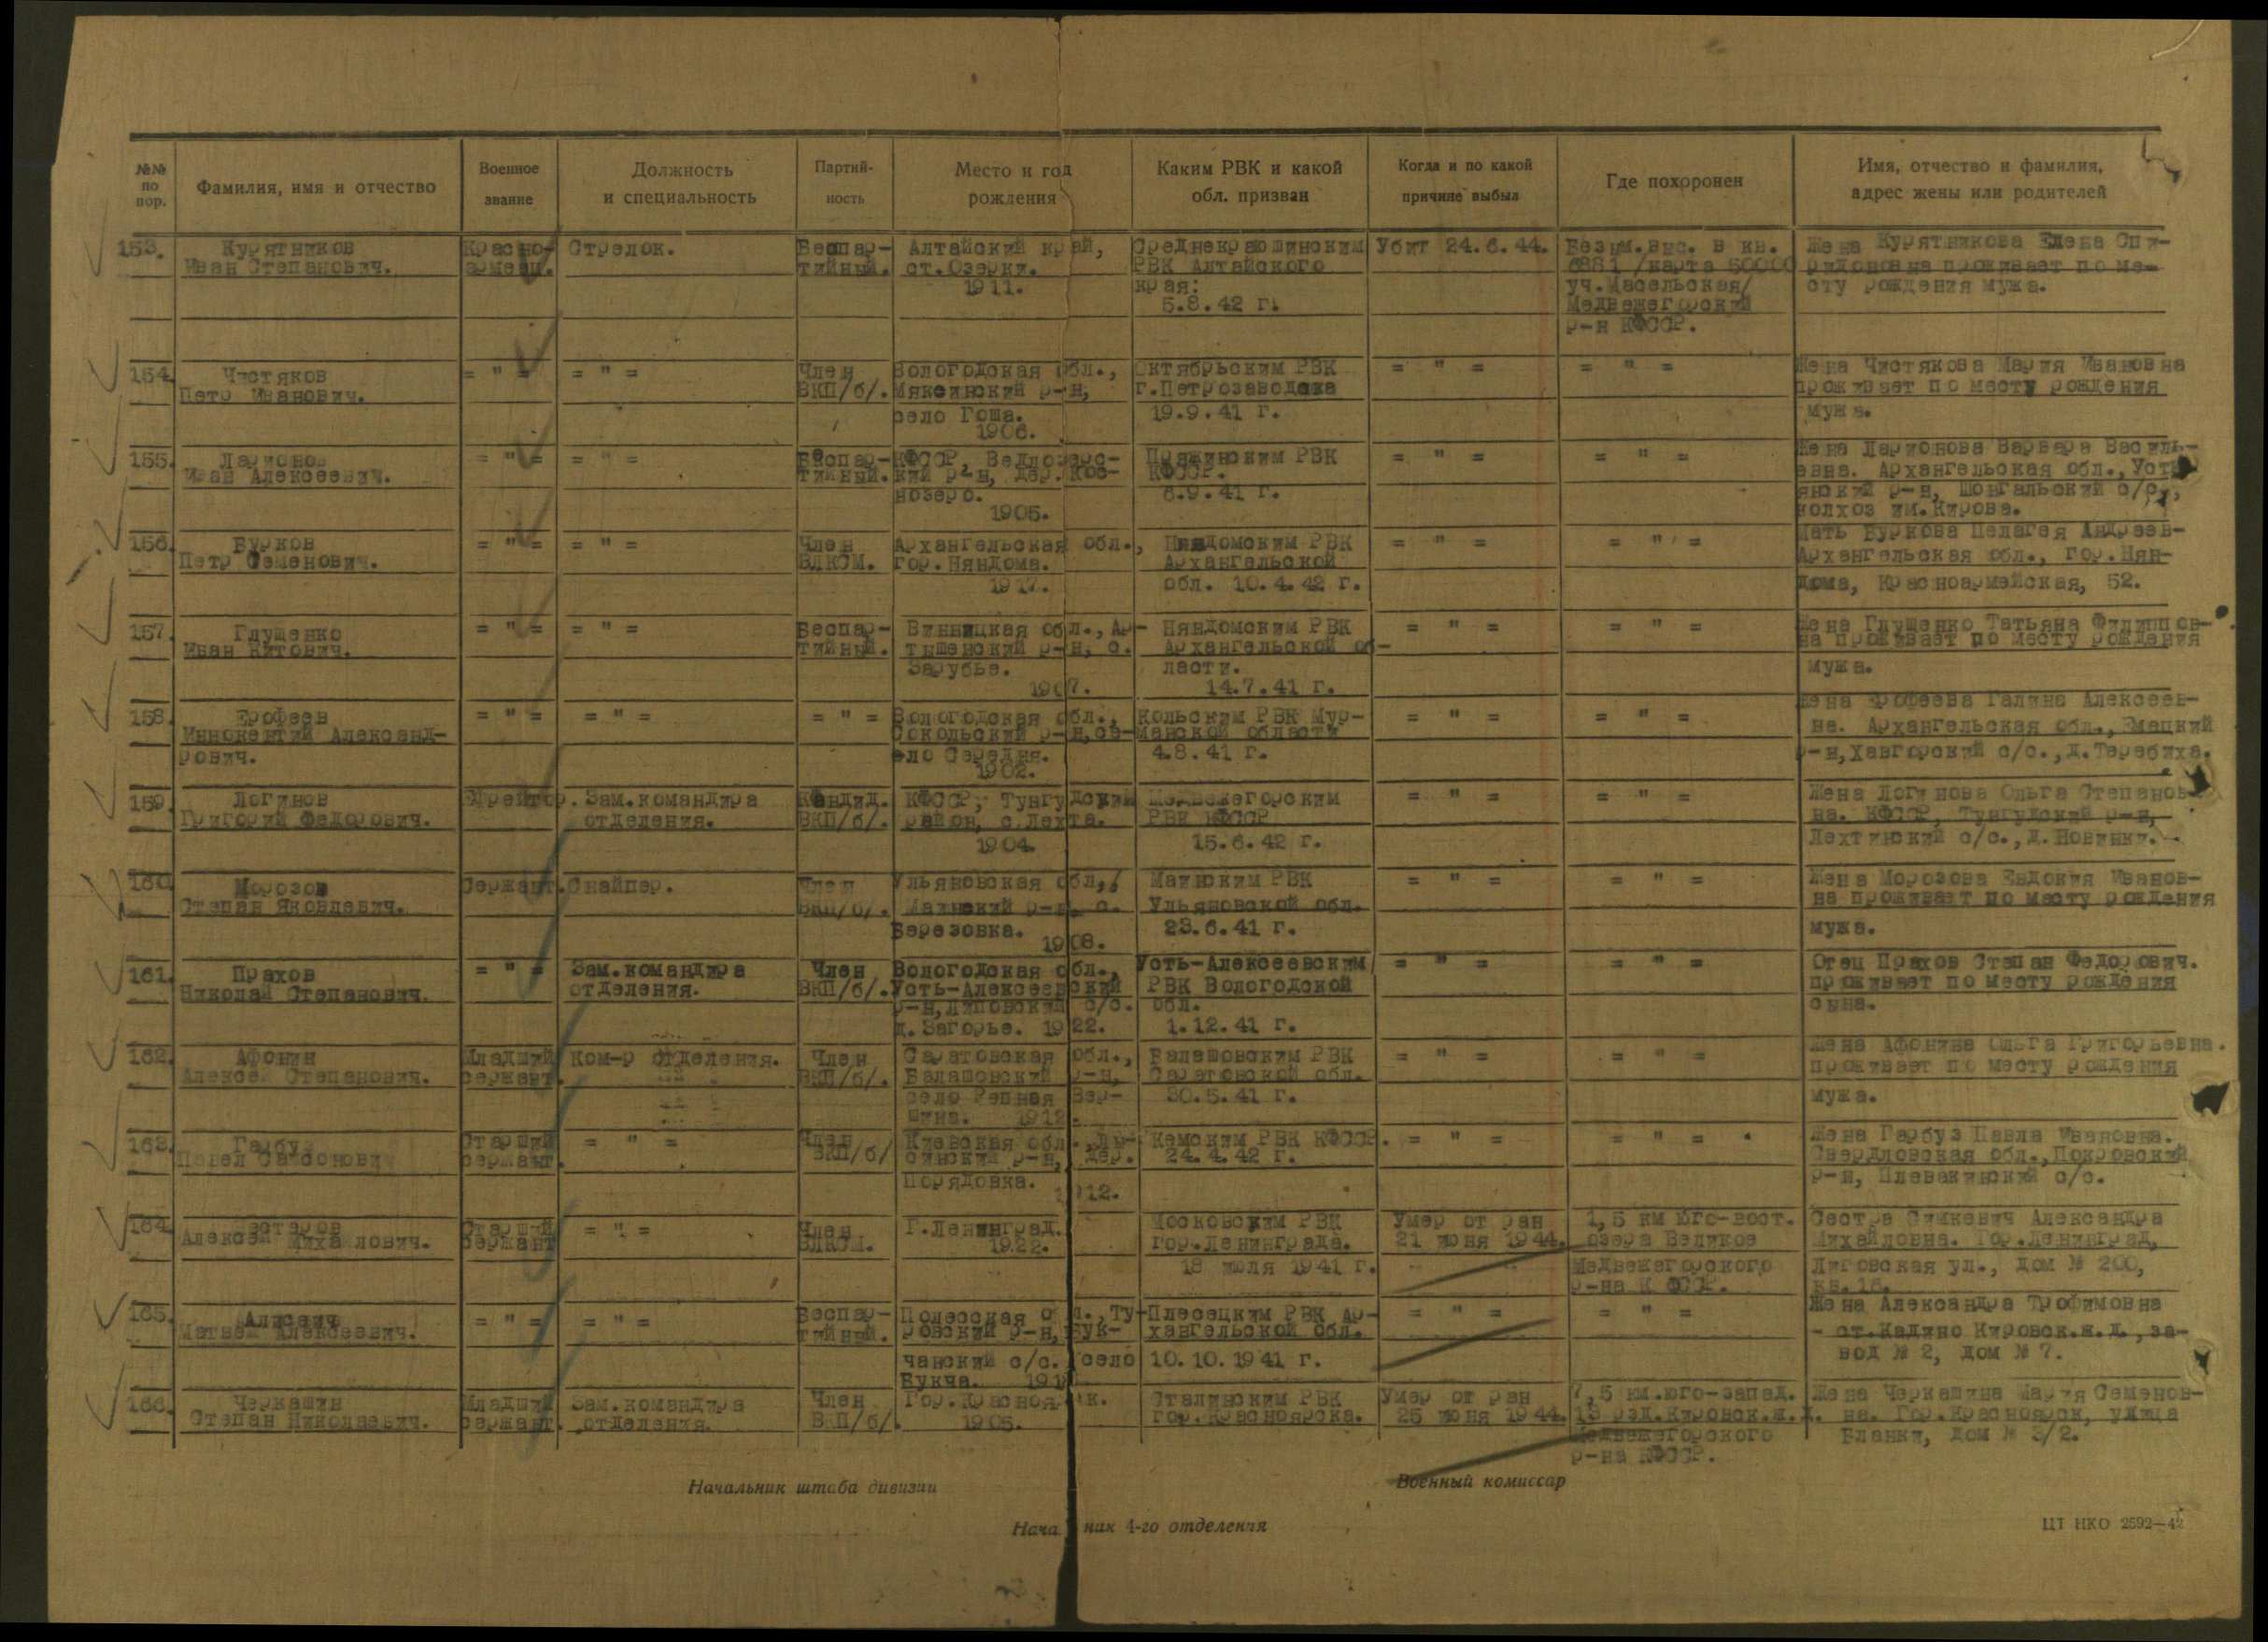 №№ по пор.
Фамилия, имя и отчество
Военное звание
Должность и специальность
Партий-ность
Место и год рождения
Каким РВК и какой обл. призван
Когда и по какой причине выбыл
Где похоронен
Имя, отчество и фамилия, адрес жены или родителей
153. Курятников Красно- Стрелок. Беспар- Алтайский край, Среднекраюшинским Убит 24.6.44. Безым.выс. в кв. Жена Курятникова Елена Спи-
Иван Степанович. армеец. тийный. ст.Озерки. РВК Алтайского 6881 /карта 50000 ридоновна проживает по ме-
1911. края: уч.Масельская/ сту рождения мужа.
5.8.42 г. Медвежегорский
р-н КФССР.
154. Чистяков = " = = " = Член Вологодская обл., Октябрьским РВК = " = = " = Жена Чистякова Мария Ивановна
Петр Иванович. ВКП/б/. Мяксинский р-н, г.Петрозаводска проживает по месту рождения
село Гоша. 19.9.41 г. мужа.
1906.
155. Ларионов = " = = " = Беспар- КФССР, Ведлозерс- Пряжинским РВК = " = = " = Жена Ларионова Варвара Василь-
Иван Алексеевич. тийный. кий р-н, дер. КФССР. евна. Архангельская обл.,
нозеро. 6.9.41 г. р-н, с/с.,
1905. колхоз им.Кирова.
156. Бурков = " = = " = Член Архангельская обл., Няндомским РВК = " = = " = Мать Буркова Пелагея Андреев-
Петр Семенович. ВЛКСМ. гор.Няндома. Архангельской Архангельская обл., гор.Нян-
1917. обл. 10.4.42 г. дома, Красноармейская, 52.
157. Глущенко = " = = " = Беспар- Винницкая обл., Няндомским РВК = " = = " = Жена Глущенко Татьяна Филиппов-
Иван Титович. тийный. р-н, с. Архангельской об- на проживает по месту рождения
Зарубье. ласти. мужа.
1907. 14.7.41 г.
158. Ерофеев = " = = " = = " = Вологодская обл., Кольским РВК Мур- = " = = " = Жена Ерофеева Галина Алексеев-
Иннокентий Александ- Сокольский р-н,се- манской области на. Архангельская обл., Емецкий
рович. ело Середня. 4.8.41 г. р-н,Хавгорский с/с.,д.Теребиха.
1902.
159. Логинов Ефрейтор. Зам.командира Кандид. КФССР, Тунгудский Медвежегорским = " = = " = Жена Логинова Ольга Степанов-
Григорий Федорович. отделения. ВКП/б/. район, с.Лехта. РВК КФССР на. КФССР, Тунгудский р-н,
1904. 15.6.42 г. Лехтинский с/с.,д.Новинки.
160. Морозов Сержант. Снайпер. Член Ульяновская обл., Маинским РВК = " = = " = Жена Морозова Евдокия Иванов-
Степан Яковлевич. ВКП/б/. Маинский р-н, с. Ульяновской обл. на проживает по месту рождения
Березовка. 23.6.41 г. мужа.
1908.
161. Прахов = " = Зам.командира Член Вологодская обл., Усть-Алексеевским = " = = " = Отец Прахов Степан Федорович.
Николай Степанович. отделения. ВКП/б/. Усть-Алексеевский РВК Вологодской проживает по месту рождения
р-н,Липовский с/с. обл. сына.
д.Загорье. 1922. 1.12.41 г.
162. Афонин Младший Ком-р отделения. Член Саратовская обл., Балашовским РВК = " = = " = Жена Афонина Ольга Григорьевна.
Алексей Степанович. сержант. ВКП/б/. Балашовский р-н, Саратовской обл. проживает по месту рождения
село Репная Вер- 30.5.41 г. мужа.
шина. 1912.
163. Гарбуз Старший = " = Член Киевская обл., Кемским РВК КФССР. = " = = " = Жена Гарбуз Павла Ивановна.
Павел сержант. ВКП/б/ р-н, дер. 24.4.42 г. Свердловская обл.,Покровский
Порядовка. 1912. р-н, Плевакинский с/с.
164. Старший = " = Член Г.Ленинград. Московским РВК Умер от ран 1,5 км юго-вост. Сестра Симкевич Александра
Алексей Михайлович. сержант ВЛКСМ. 1922. гор.Ленинграда. 21 июня 1944. озера Великое Михайловна. Гор.Ленинград,
18 июля 1941 г. Медвежегорского Лиговская ул., дом № 200,
р-на К ФССР. кв.16.
165. Алисевич = " = = " = Беспар- Полесская обл.,Ту- Плесецким РВК Ар- = " = = " = Жена Александра Трофимовна
Матвей Алексеевич. тийный. ровский р-н, Бук- хангельской обл. - ст.Калино Кировск.ж.д.,за-
чанский с/с. село 10.10.1941 г. вод № 2, дом № 7.
Букча.
166. Черкашин Младший Зам.командира Член Гор.Красноярск. Сталинским РВК Умер от ран 7,5 км.юго-запад. Жена Черкашина Мария Семенов-
Степан Николаевич. сержант. отделения. ВКП/б/. 1905. гор.Красноярска. 25 июня 1944. 13 рзд.Кировск.ж.д. на. Гор.Красноярск, улица
Медвежегорского Бланки, дом № 3/2.
р-на КФССР.
Начальник штаба дивизии
Военный комиссар
Нача ник 4-го отделения
ЦТ НКО 2592—42